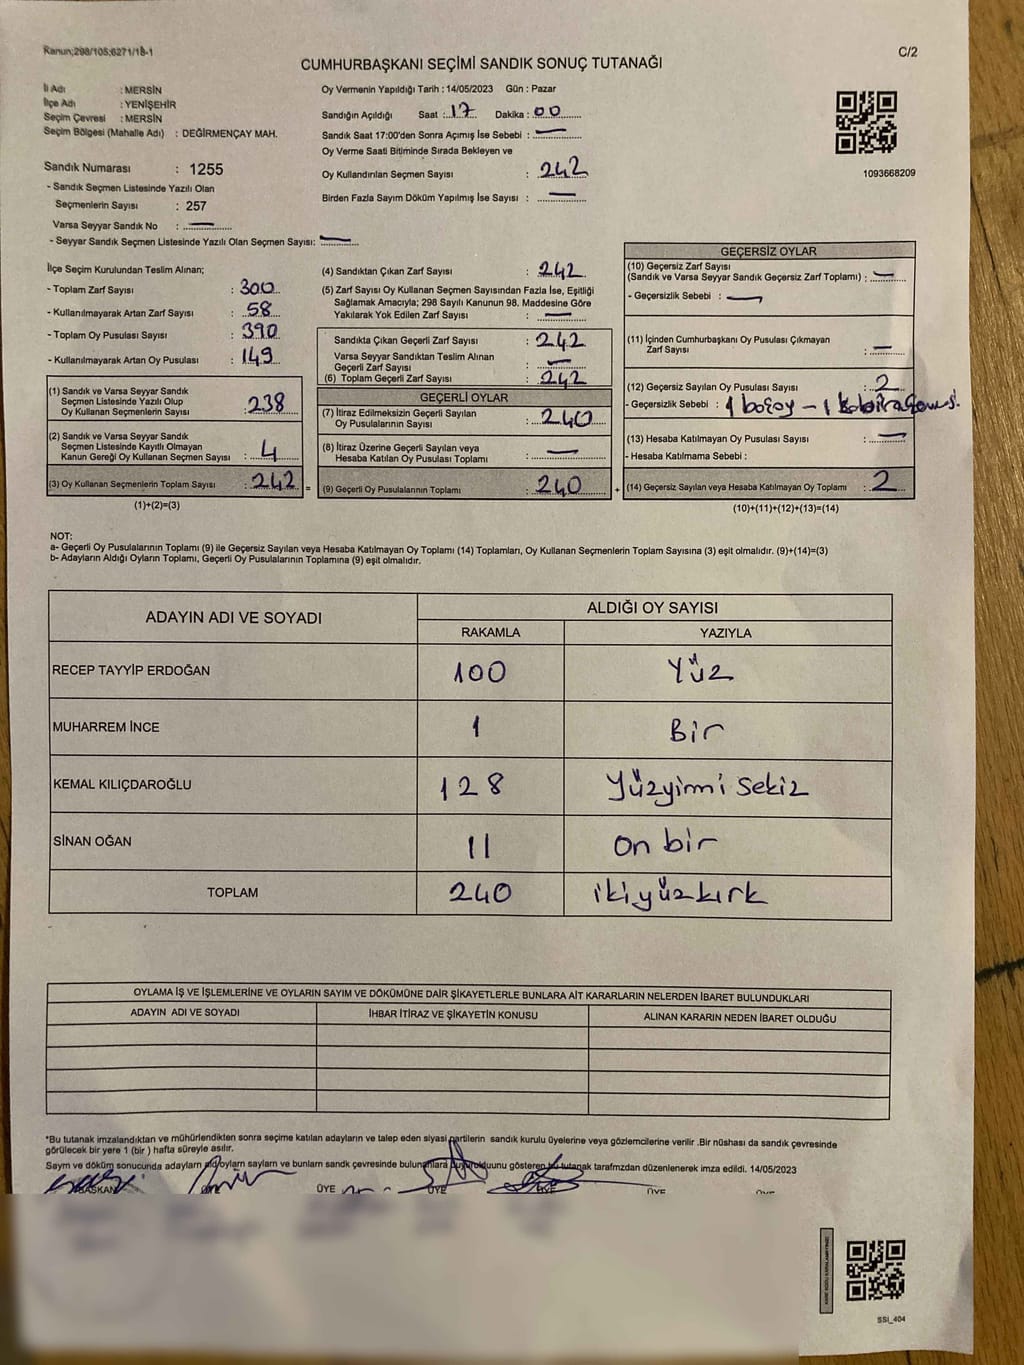 Kanun;298/105;6271/18-1
C/2
CUMHURBAŞKANI SEÇİMİ SANDIK SONUÇ TUTANAĞI
İl Adı : MERSİN
İlçe Adı : YENİŞEHİR
Seçim Çevresi : MERSİN
Seçim Bölgesi (Mahalle Adı) : DEĞİRMENÇAY MAH.
Sandık Numarası : 1255
- Sandık Seçmen Listesinde Yazılı Olan
Seçmenlerin Sayısı : 257
Varsa Seyyar Sandık No : —
- Seyyar Sandık Seçmen Listesinde Yazılı Olan Seçmen Sayısı: —
Oy Vermenin Yapıldığı Tarih : 14/05/2023 Gün : Pazar
Sandığın Açıldığı Saat : 17 Dakika : 00
Sandık Saat 17:00'den Sonra Açımış İse Sebebi : —
Oy Verme Saati Bitiminde Sırada Bekleyen ve
Oy Kullandırılan Seçmen Sayısı : 242
Birden Fazla Sayım Döküm Yapılmış İse Sayısı : —
1093668209
İlçe Seçim Kurulundan Teslim Alınan;
- Toplam Zarf Sayısı : 300
- Kullanılmayarak Artan Zarf Sayısı : 58
- Toplam Oy Pusulası Sayısı : 390
- Kullanılmayarak Artan Oy Pusulası : 149
(1) Sandık ve Varsa Seyyar Sandık
Seçmen Listesinde Yazılı Olup
Oy Kullanan Seçmenlerin Sayısı : 238
(2) Sandık ve Varsa Seyyar Sandık
Seçmen Listesinde Kayıtlı Olmayan
Kanun Gereği Oy Kullanan Seçmen Sayısı : 4
(3) Oy Kullanan Seçmenlerin Toplam Sayısı : 242 =
(1)+(2)=(3)
(4) Sandıktan Çıkan Zarf Sayısı : 242
(5) Zarf Sayısı Oy Kullanan Seçmen Sayısından Fazla İse, Eşitliği
Sağlamak Amacıyla; 298 Sayılı Kanunun 98. Maddesine Göre
Yakılarak Yok Edilen Zarf Sayısı : —
Sandıkta Çıkan Geçerli Zarf Sayısı : 242
Varsa Seyyar Sandıktan Teslim Alınan
Geçerli Zarf Sayısı : —
(6) Toplam Geçerli Zarf Sayısı : 242
GEÇERLİ OYLAR
(7) İtiraz Edilmeksizin Geçerli Sayılan
Oy Pusulalarının Sayısı : 240
(8) İtiraz Üzerine Geçerli Sayılan veya
Hesaba Katılan Oy Pusulası Toplamı : —
(9) Geçerli Oy Pusulalarının Toplamı : 240 +
GEÇERSİZ OYLAR
(10) Geçersiz Zarf Sayısı
(Sandık ve Varsa Seyyar Sandık Geçersiz Zarf Toplamı) : —
- Geçersizlik Sebebi : —
(11) İçinden Cumhurbaşkanı Oy Pusulası Çıkmayan
Zarf Sayısı : —
(12) Geçersiz Sayılan Oy Pusulası Sayısı : 2
- Geçersizlik Sebebi : 1 boş oy – 1
(13) Hesaba Katılmayan Oy Pusulası Sayısı : —
- Hesaba Katılmama Sebebi :
(14) Geçersiz Sayılan veya Hesaba Katılmayan Oy Toplamı : 2
(10)+(11)+(12)+(13)=(14)
NOT:
a- Geçerli Oy Pusulalarının Toplamı (9) ile Geçersiz Sayılan veya Hesaba Katılmayan Oy Toplamı (14) Toplamları, Oy Kullanan Seçmenlerin Toplam Sayısına (3) eşit olmalıdır. (9)+(14)=(3)
b- Adayların Aldığı Oyların Toplamı, Geçerli Oy Pusulalarının Toplamına (9) eşit olmalıdır.
ADAYIN ADI VE SOYADI
ALDIĞI OY SAYISI
RAKAMLA YAZIYLA
RECEP TAYYİP ERDOĞAN 100 Yüz
MUHARREM İNCE 1 Bir
KEMAL KILIÇDAROĞLU 128 Yüzyirmi sekiz
SİNAN OĞAN 11 on bir
TOPLAM 240 ikiyüzkırk
OYLAMA İŞ VE İŞLEMLERİNE VE OYLARIN SAYIM VE DÖKÜMÜNE DAİR ŞİKAYETLERLE BUNLARA AİT KARARLARIN NELERDEN İBARET BULUNDUKLARI
ADAYIN ADI VE SOYADI İHBAR İTİRAZ VE ŞİKAYETİN KONUSU ALINAN KARARIN NEDEN İBARET OLDUĞU
*Bu tutanak imzalandıktan ve mühürlendikten sonra seçime katılan adayların ve talep eden siyasi partilerin sandık kurulu üyelerine veya gözlemcilerine verilir .Bir nüshası da sandık çevresinde
görülecek bir yere 1 (bir ) hafta süreyle asılır.
Sayım ve döküm sonucunda adayların oyların sayların ve bunların sandık çevresinde bulunanlara gösteren bu tutanak tarafmzdan düzenlenerek imza edildi. 14/05/2023
BAŞKAN ÜYE ÜYE ÜYE ÜYE ÜYE ÜYE
SSI_404